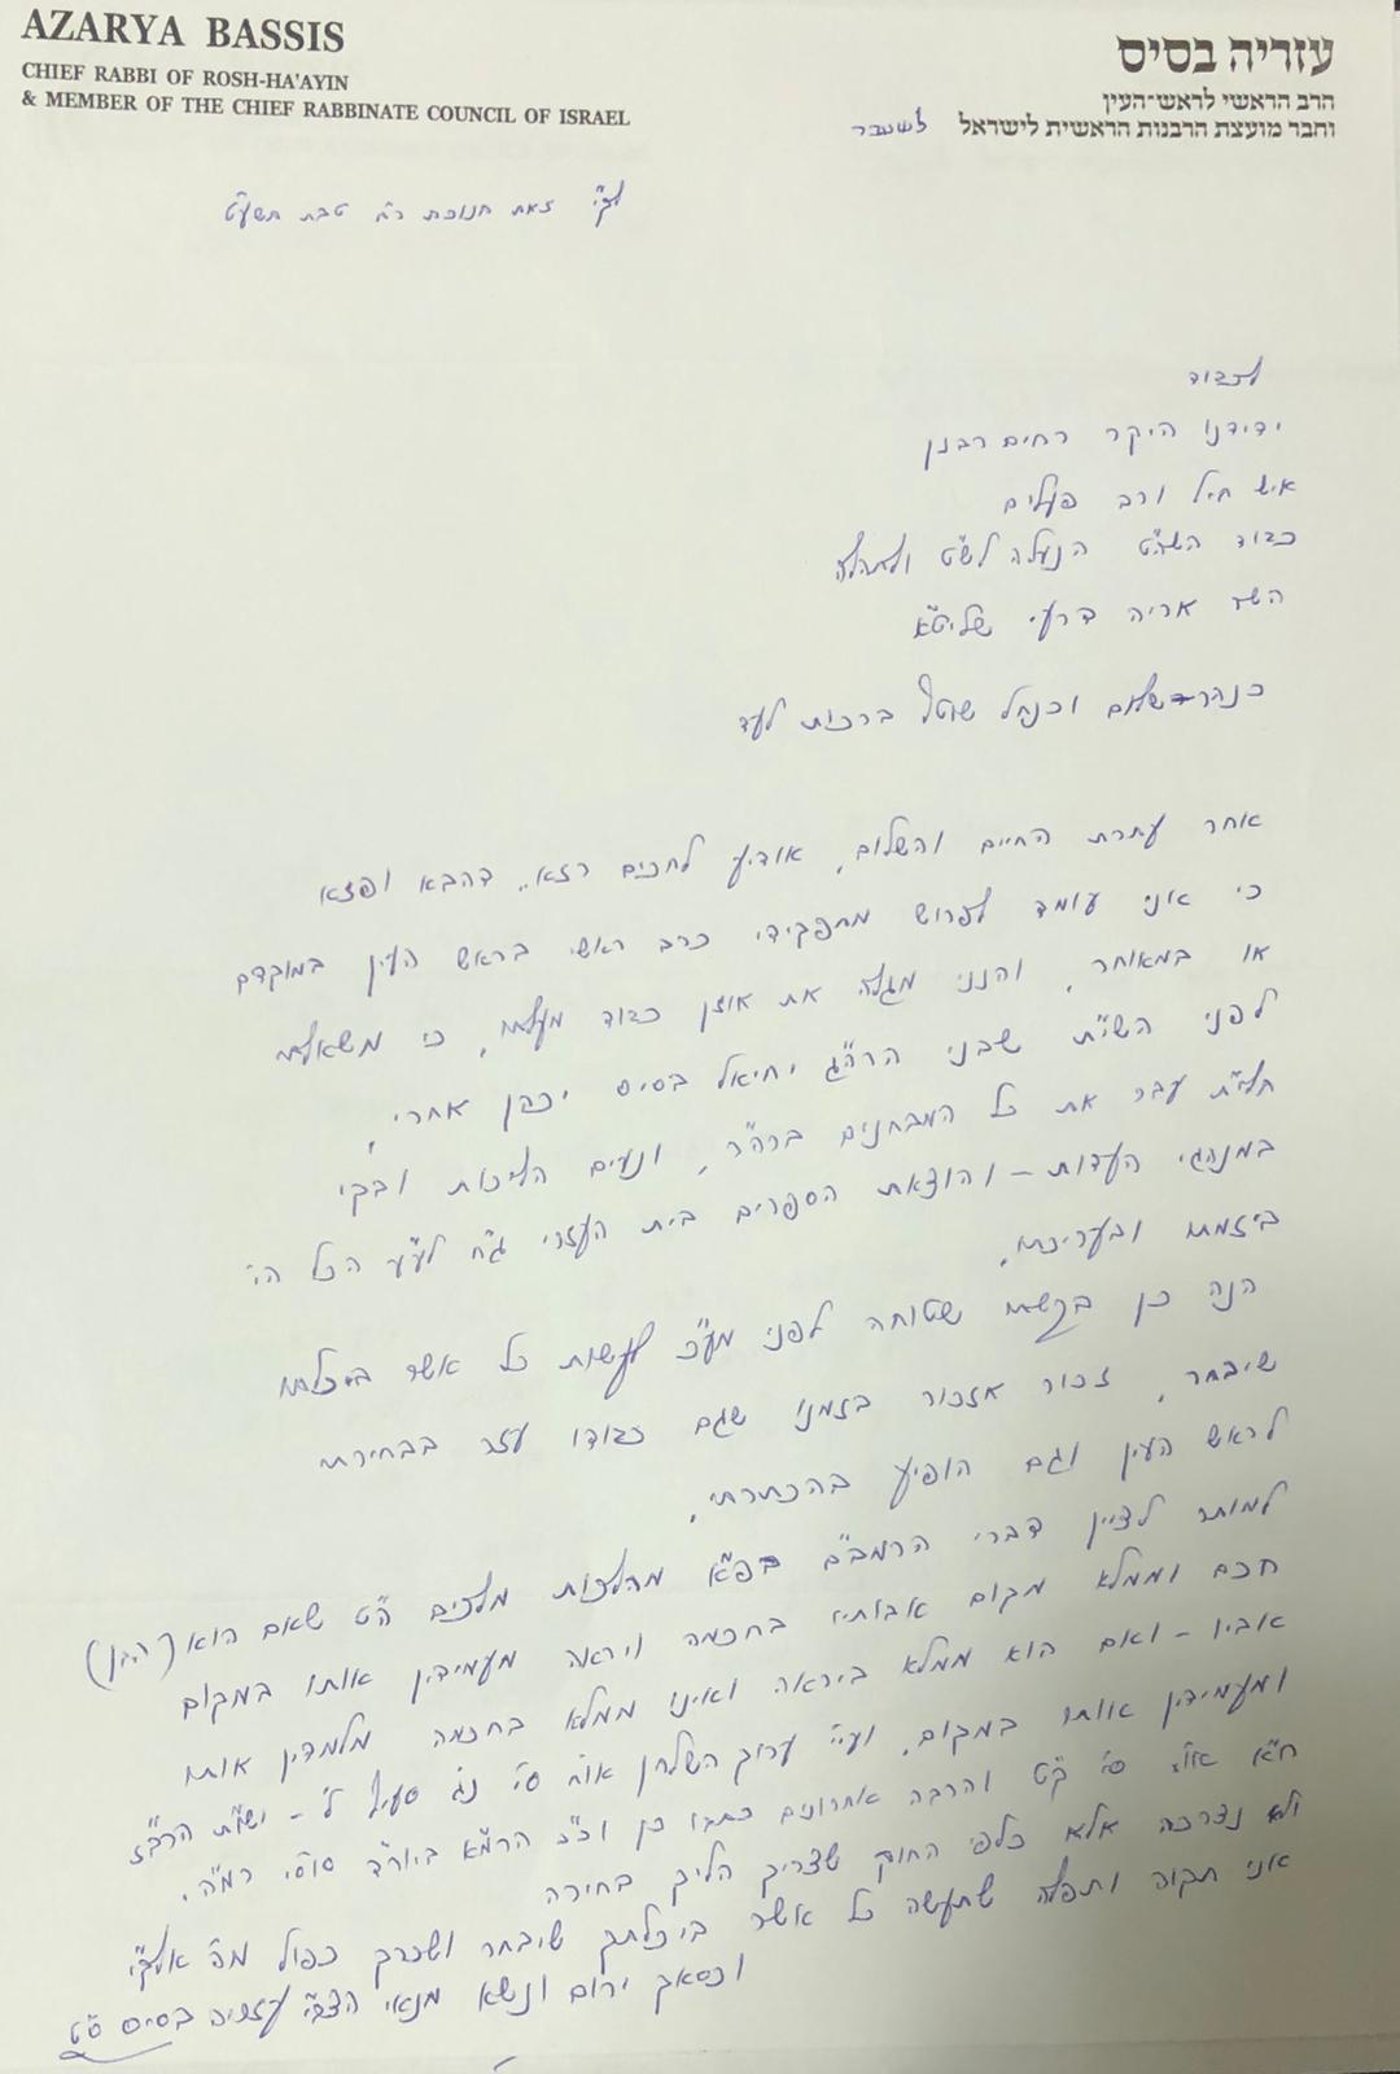 AZARYA BASSIS
CHIEF RABBI OF ROSH-HA'AYIN
& MEMBER OF THE CHIEF RABBINATE COUNCIL OF ISRAEL
עזריה בסיס
הרב הראשי לראש־העין
וחבר מועצת הרבנות הראשית לישראל לשעבר
זאת חנוכת ר"ח טבת תשע"ט
לכבוד
ידידנו היקר רחים רבנן
איש חיל ורב פעלים
כבוד השה"ט הנעלה לש"ט ולתהלה
השר אריה דרעי שליט"א
כנהר שלום וכנחל שוטף ברכות לעד
אחר עתרת החיים והשלום, אודיע לחכים רזא.. דהבא ופזא
כי אני עומד לפרוש מתפקידי כרב ראשי בראש העין במוקדם
או במאוחר, והנני מגלה את אוזן כבוד מעלתו, כי משאלתי
לפני השי"ת שבני הרה"ג יחיאל בסיס יכהן אחרי,
תלי"ת עבר את כל המבחנים ברה"ר, ונעים הליכות ובקי
במנהגי העדות – והוצאת הספרים בית העזרי ג"ח לע"ע הכל הי'
ביזמתו ובעריכתו.
הנה כן בקשתי שטוחה לפני מע"כ לעשות כל אשר ביכלתו
שיבחר, זכור אזכור בזמנו שגם כבודו עזר בבחירתי
לראש העין וגם הופיע בהכתרתי.
למותר לציין דברי הרמב"ם בפ"א מהלכות מלכים ה"ט שאם הוא (הבן)
חכם וממלא מקום אבותיו בחכמה ויראה מעמידין אותו במקום
אביו – ואם הוא ממלא ביראה ואינו ממלא בחכמה מלמדין אותו
ומעמידין אותו במקום. ועי' ערוך השלחן או"ח סי' נג סעיף ל' – ושו"ת הרב"ז
ח"א או"ח סי' ק"ט והרבה אחרונים כתבו כן וכ"כ הרמ"א ביור"ד סוסי' רמ"ה.
ולא נצרכה אלא כלפי החוק שצריך הליך בחירה
אני תקוה ותפלה שתעשה כל אשר ביכלתך שיבחר ושכרך כפול מה' אלקי
וכסאך ירום ונשא מנאי הצב"י עזריה בסיס ס"ט